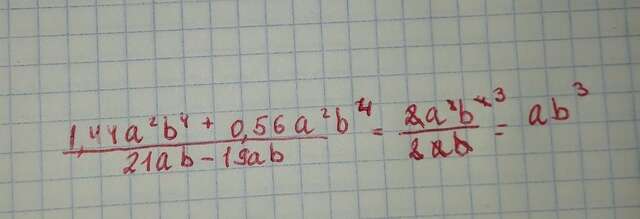 1,44a²b⁴ + 0,56a²b⁴ / 21ab - 19ab = 2a²b⁴ ³ / 2ab = ab³